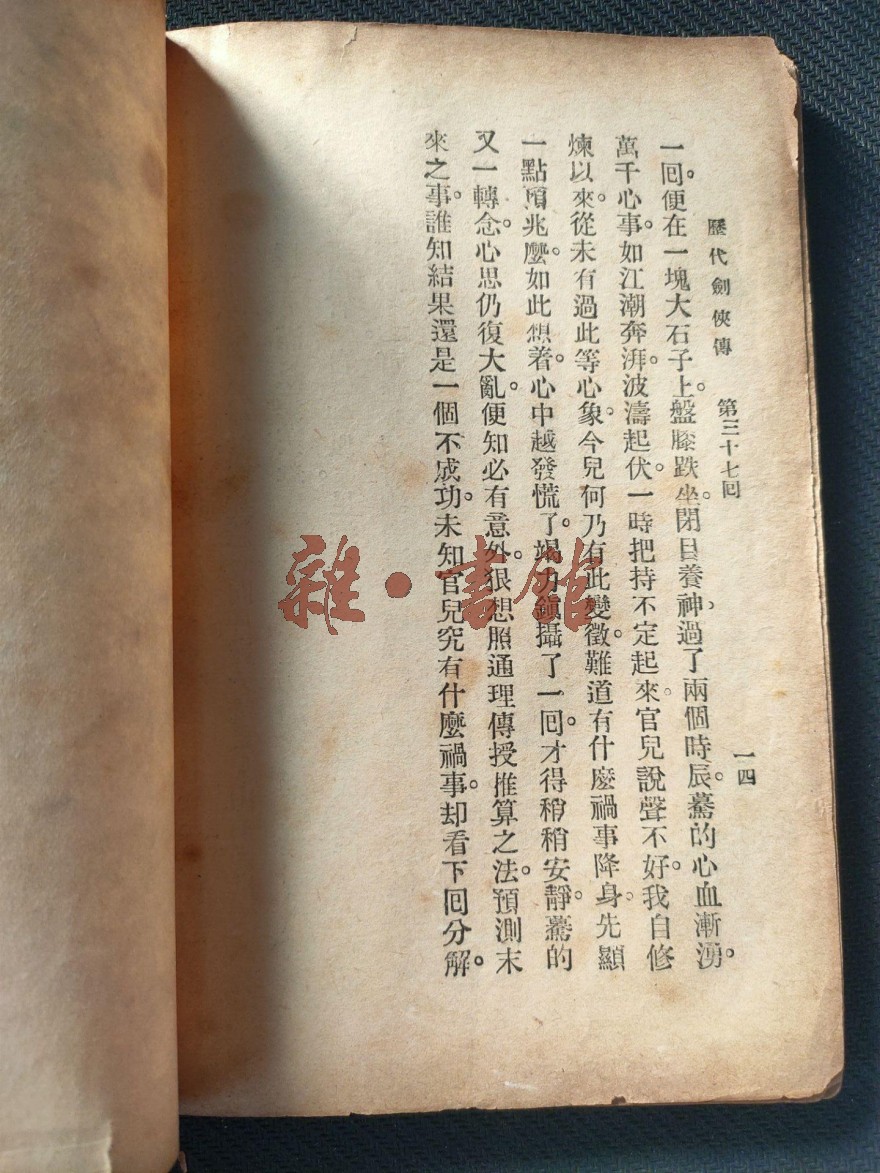 歷代劍俠傳 第三十七回 一四
一回。便在一塊大石子上。盤膝趺坐。閉目養神。過了兩個時辰。驀的心血漸湧。
萬千心事。如江潮奔湃。波濤起伏。一時把持不定起來。官兒說聲不好。我自修
煉以來。從未有過此等心象。今兒何乃有此變徵。難道有什麼禍事降身。先顯
一點預兆麼。如此想着。心中越發慌了。竭力鎮攝了一回。才得稍稍安靜。驀的
又一轉念。心思仍復大亂。便知必有意外。狠想照通理傳授推算之法。預測未
來之事。誰知結果還是一個不成功。未知官兒究有什麼禍事。却看下回分解。
雜·書館